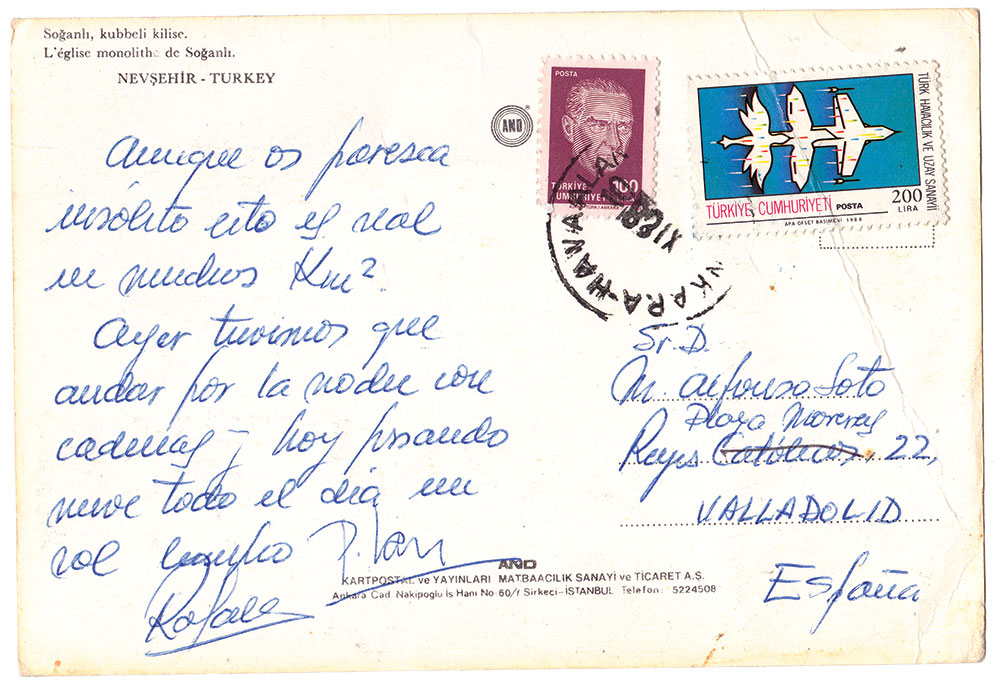 Soğanlı, kubbeli kilise.
L'église monolithe de Soğanlı.
NEVŞEHİR - TURKEY
AND
POSTA
TÜRKİYE CUMHURİYETİ
100
TÜRK HAVACILIK VE UZAY SANAYİİ
TÜRKİYE CUMHURİYETİ POSTA
200
LİRA
APA OFSET BASIMEVİ 1988
ANKARA-HAVAALANI
Aunque os paresca
insólito esto es real
en muchos Km²
Ayer tuvimos que
andar por la noche con
cadenas y hoy pisando
nieve todo el día en
sol
Rafael
Sr. D.
M. Alfonso Soto
Plaza
Reyes Católicos, 22,
VALLADOLID
España
AND
KARTPOSTAL ve YAYINLARI MATBAACILIK SANAYİ ve TİCARET A.Ş.
Ankara Cad Nakipoglu İş Hanı No 60/f Sirkeci-İSTANBUL Telefon: 5224508